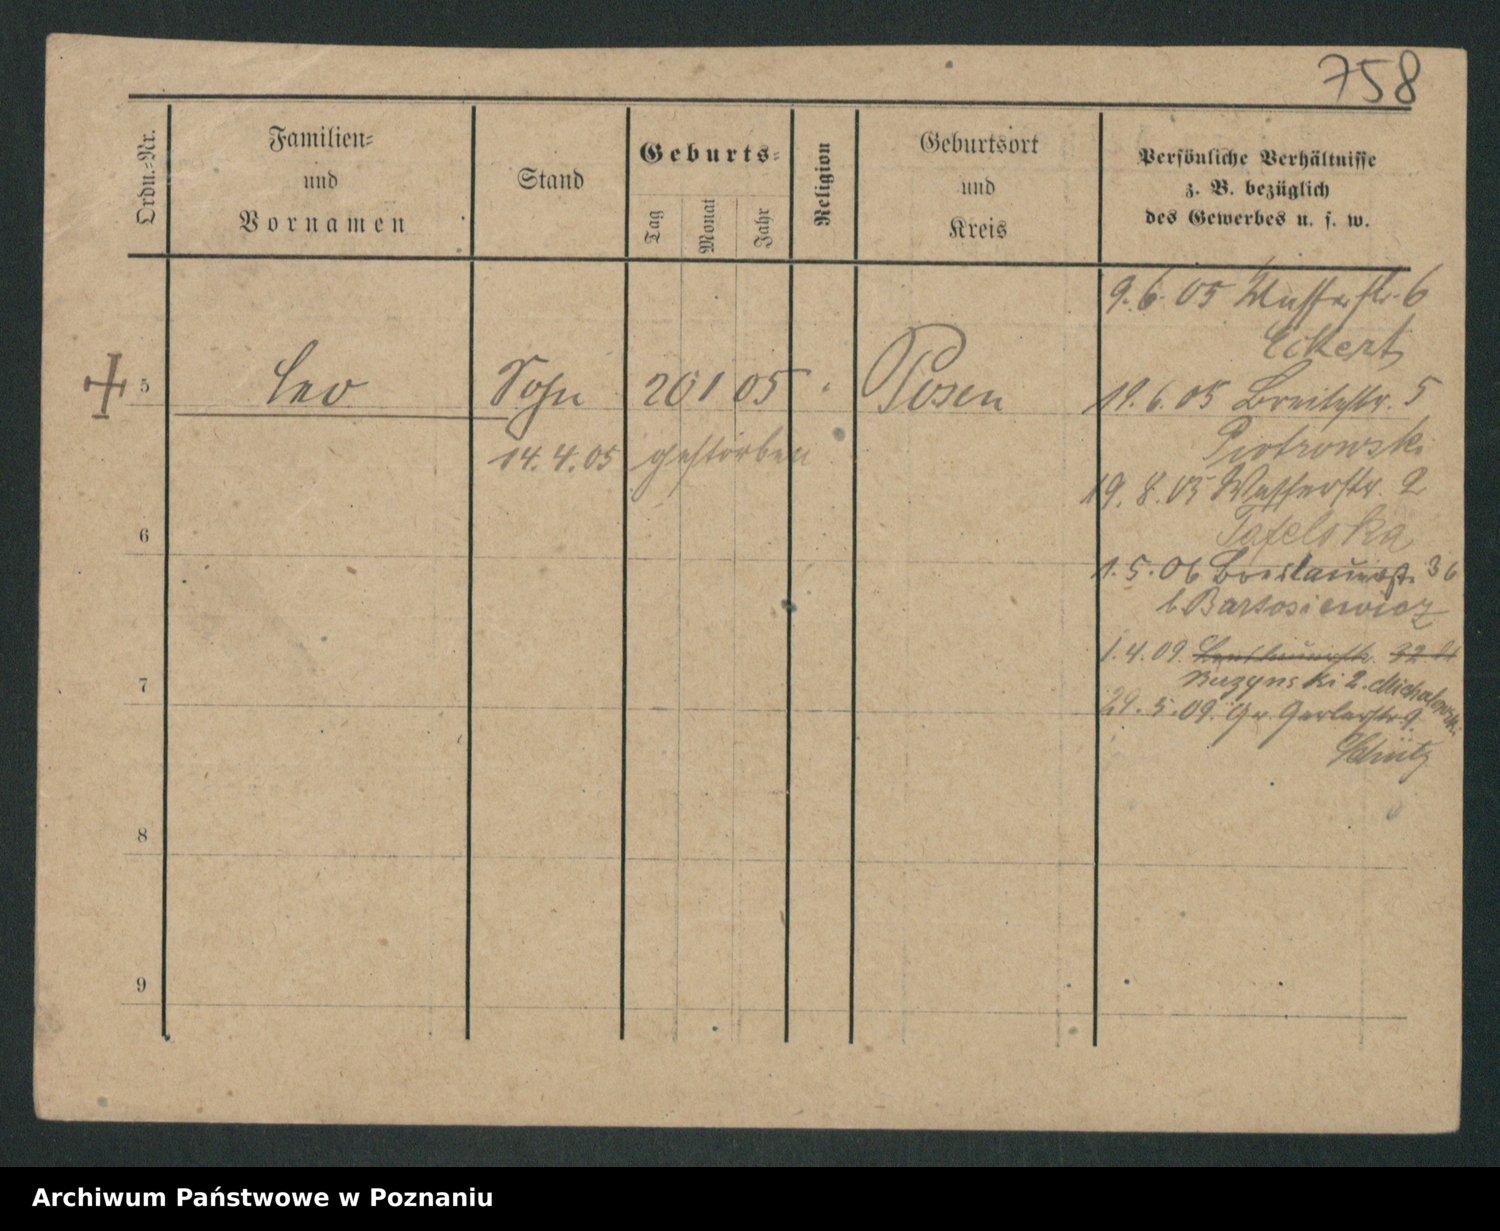 758
Ordn.-Nr.
Familien-
und
Vornamen
Stand
Geburts-
Tag
Monat
Jahr
Religion
Geburtsort
und
Kreis
Persönliche Verhältnisse
z. B. bezüglich
des Gewerbes u. s. w.
5 Leo Sohn 20 1 05 " Posen
14.4.05 gestorben
6
7
8
9
9.6.05 Wasserstr. 6
Eckert
19.6.05 Breitestr. 5
Piotrowski
19.8.05 Wasserstr. 2
Tafelska
1.5.06 Breslauerstr. 36
b Bartosiewicz
1.4.09. 32
2. Michalowski
29.5.09. Gr. Gerberstr 9.
Schütz
Archiwum Państwowe w Poznaniu